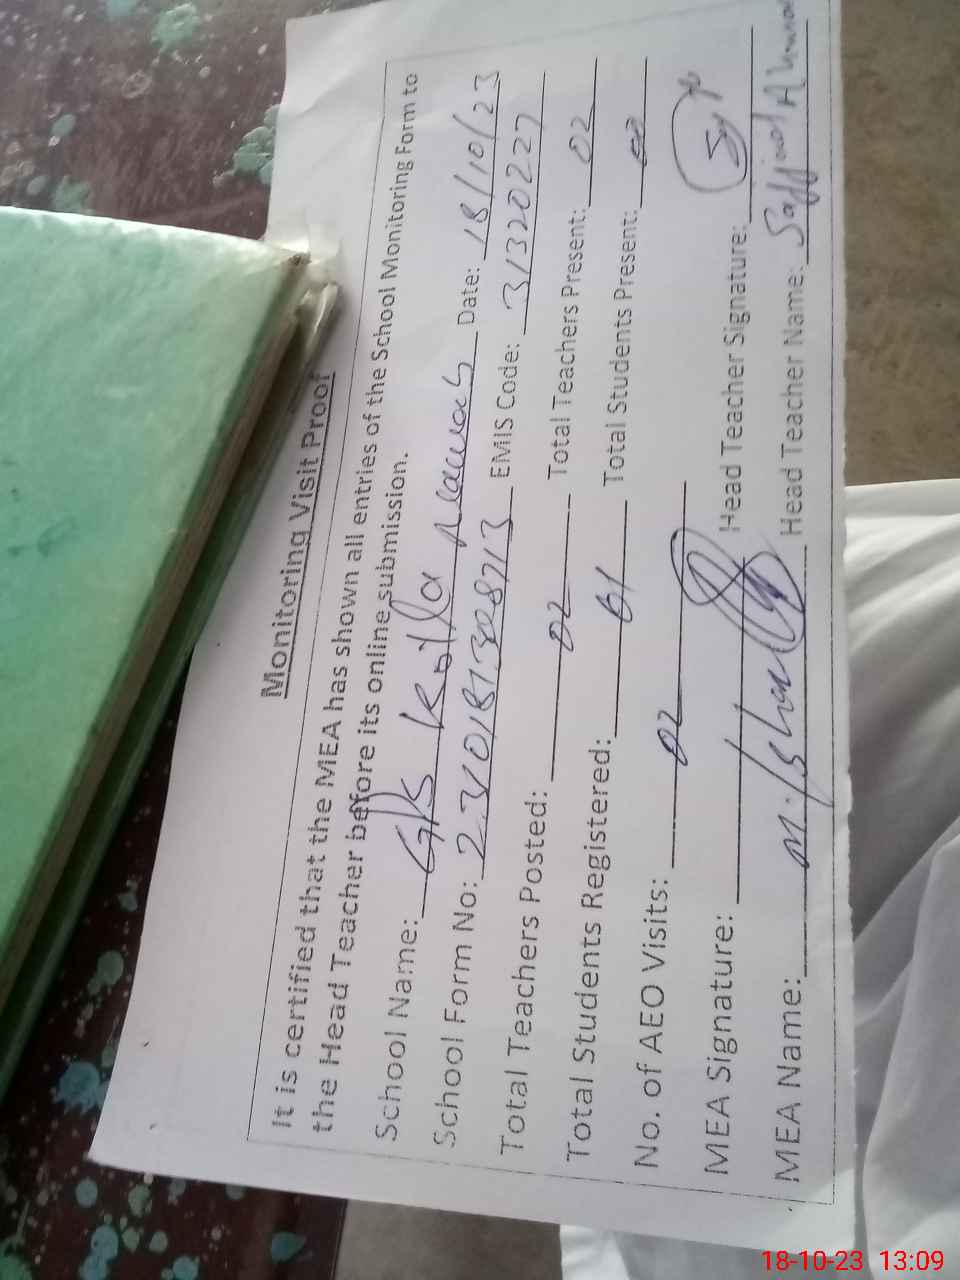 Monitoring Visit Proof
It is certified that the MEA has shown all entries of the School Monitoring Form to
the Head Teacher before its online submission.
School Name: GPS Kotla Date: 18/10/23
School Form No: EMIS Code: 31320227
Total Teachers Posted: 02 Total Teachers Present: 02
Total Students Registered: 61 Total Students Present:
No. of AEO Visits: 02
MEA Signature: Head Teacher Signature:
MEA Name: M. Head Teacher Name: Sajjad Ahmad
18-10-23 13:09